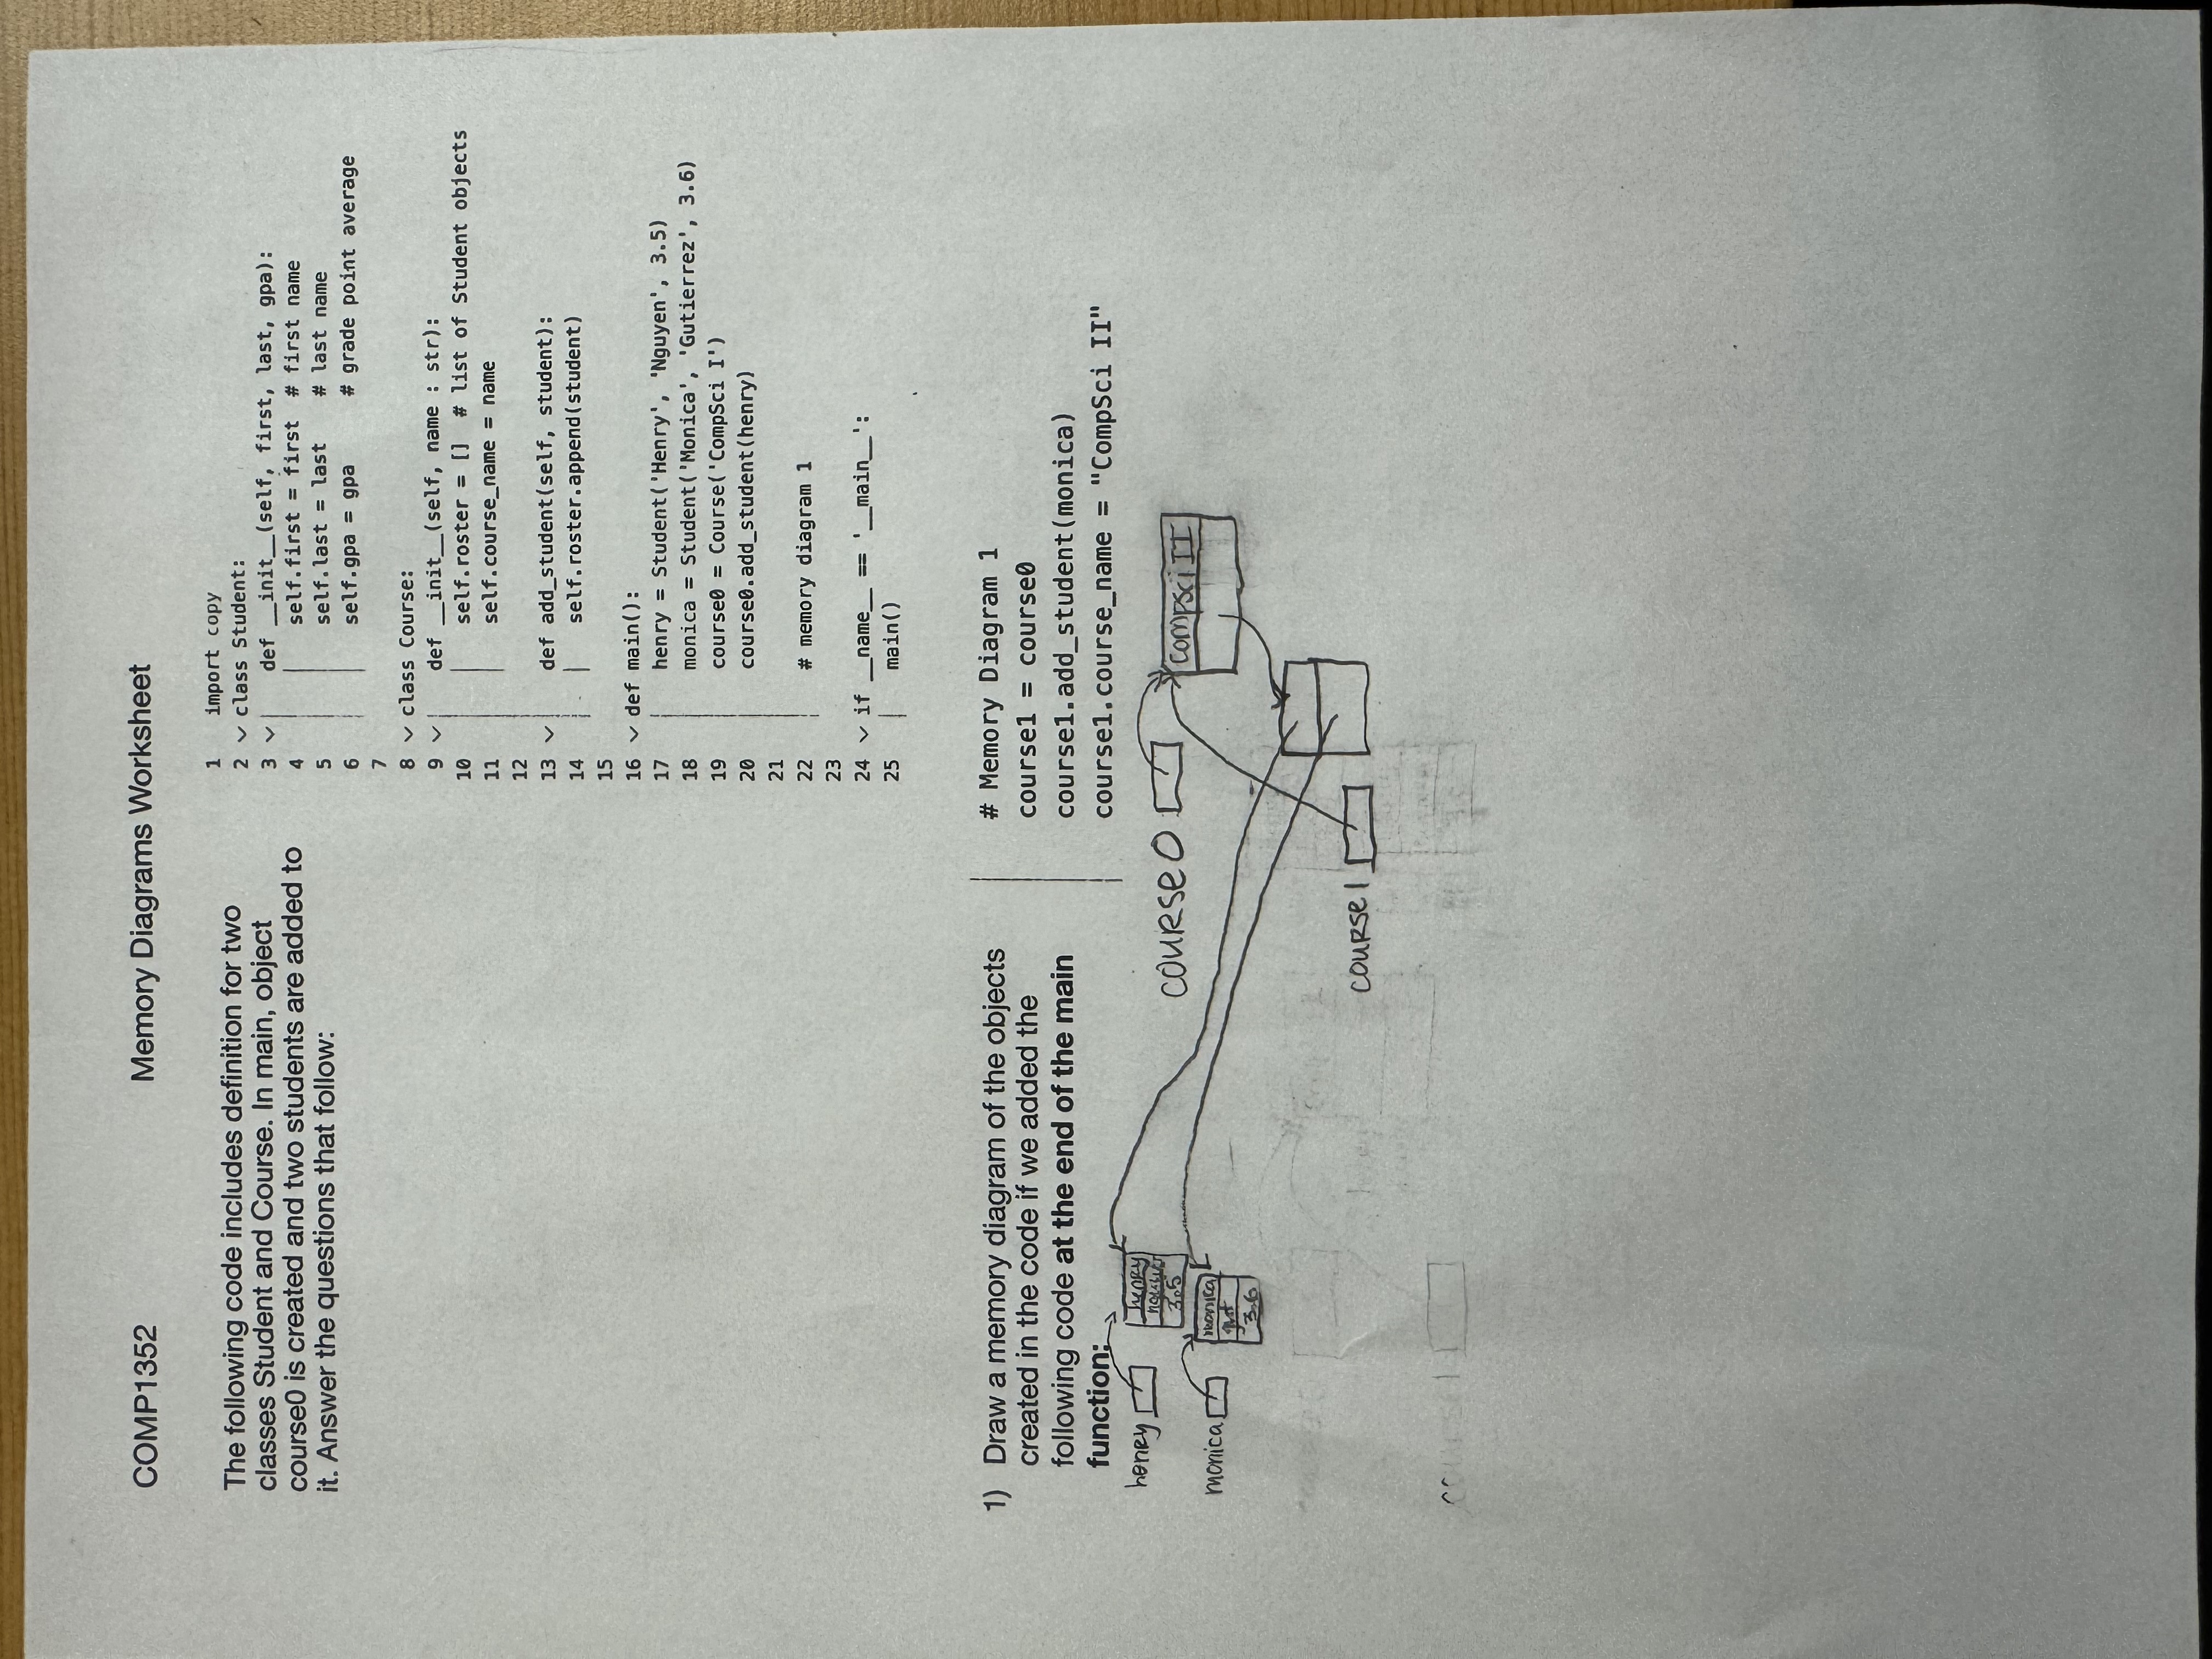 COMP1352 Memory Diagrams Worksheet
The following code includes definition for two
classes Student and Course. In main, object
course0 is created and two students are added to
it. Answer the questions that follow:
1 import copy
2 class Student:
3 def __init__(self, first, last, gpa):
4 self.first = first # first name
5 self.last = last # last name
6 self.gpa = gpa # grade point average
7
8 class Course:
9 def __init__(self, name : str):
10 self.roster = [] # list of Student objects
11 self.course_name = name
12
13 def add_student(self, student):
14 self.roster.append(student)
15
16 def main():
17 henry = Student('Henry', 'Nguyen', 3.5)
18 monica = Student('Monica', 'Gutierrez', 3.6)
19 course0 = Course('CompSci I')
20 course0.add_student(henry)
21
22 # memory diagram 1
23
24 if __name__ == '__main__':
25 main()
1) Draw a memory diagram of the objects
created in the code if we added the
following code at the end of the main
function:
# Memory Diagram 1
course1 = course0
course1.add_student(monica)
course1.course_name = "CompSci II"
henry
henry
3.5
monica
monica
gut
3.6
course0
compsci II
course1